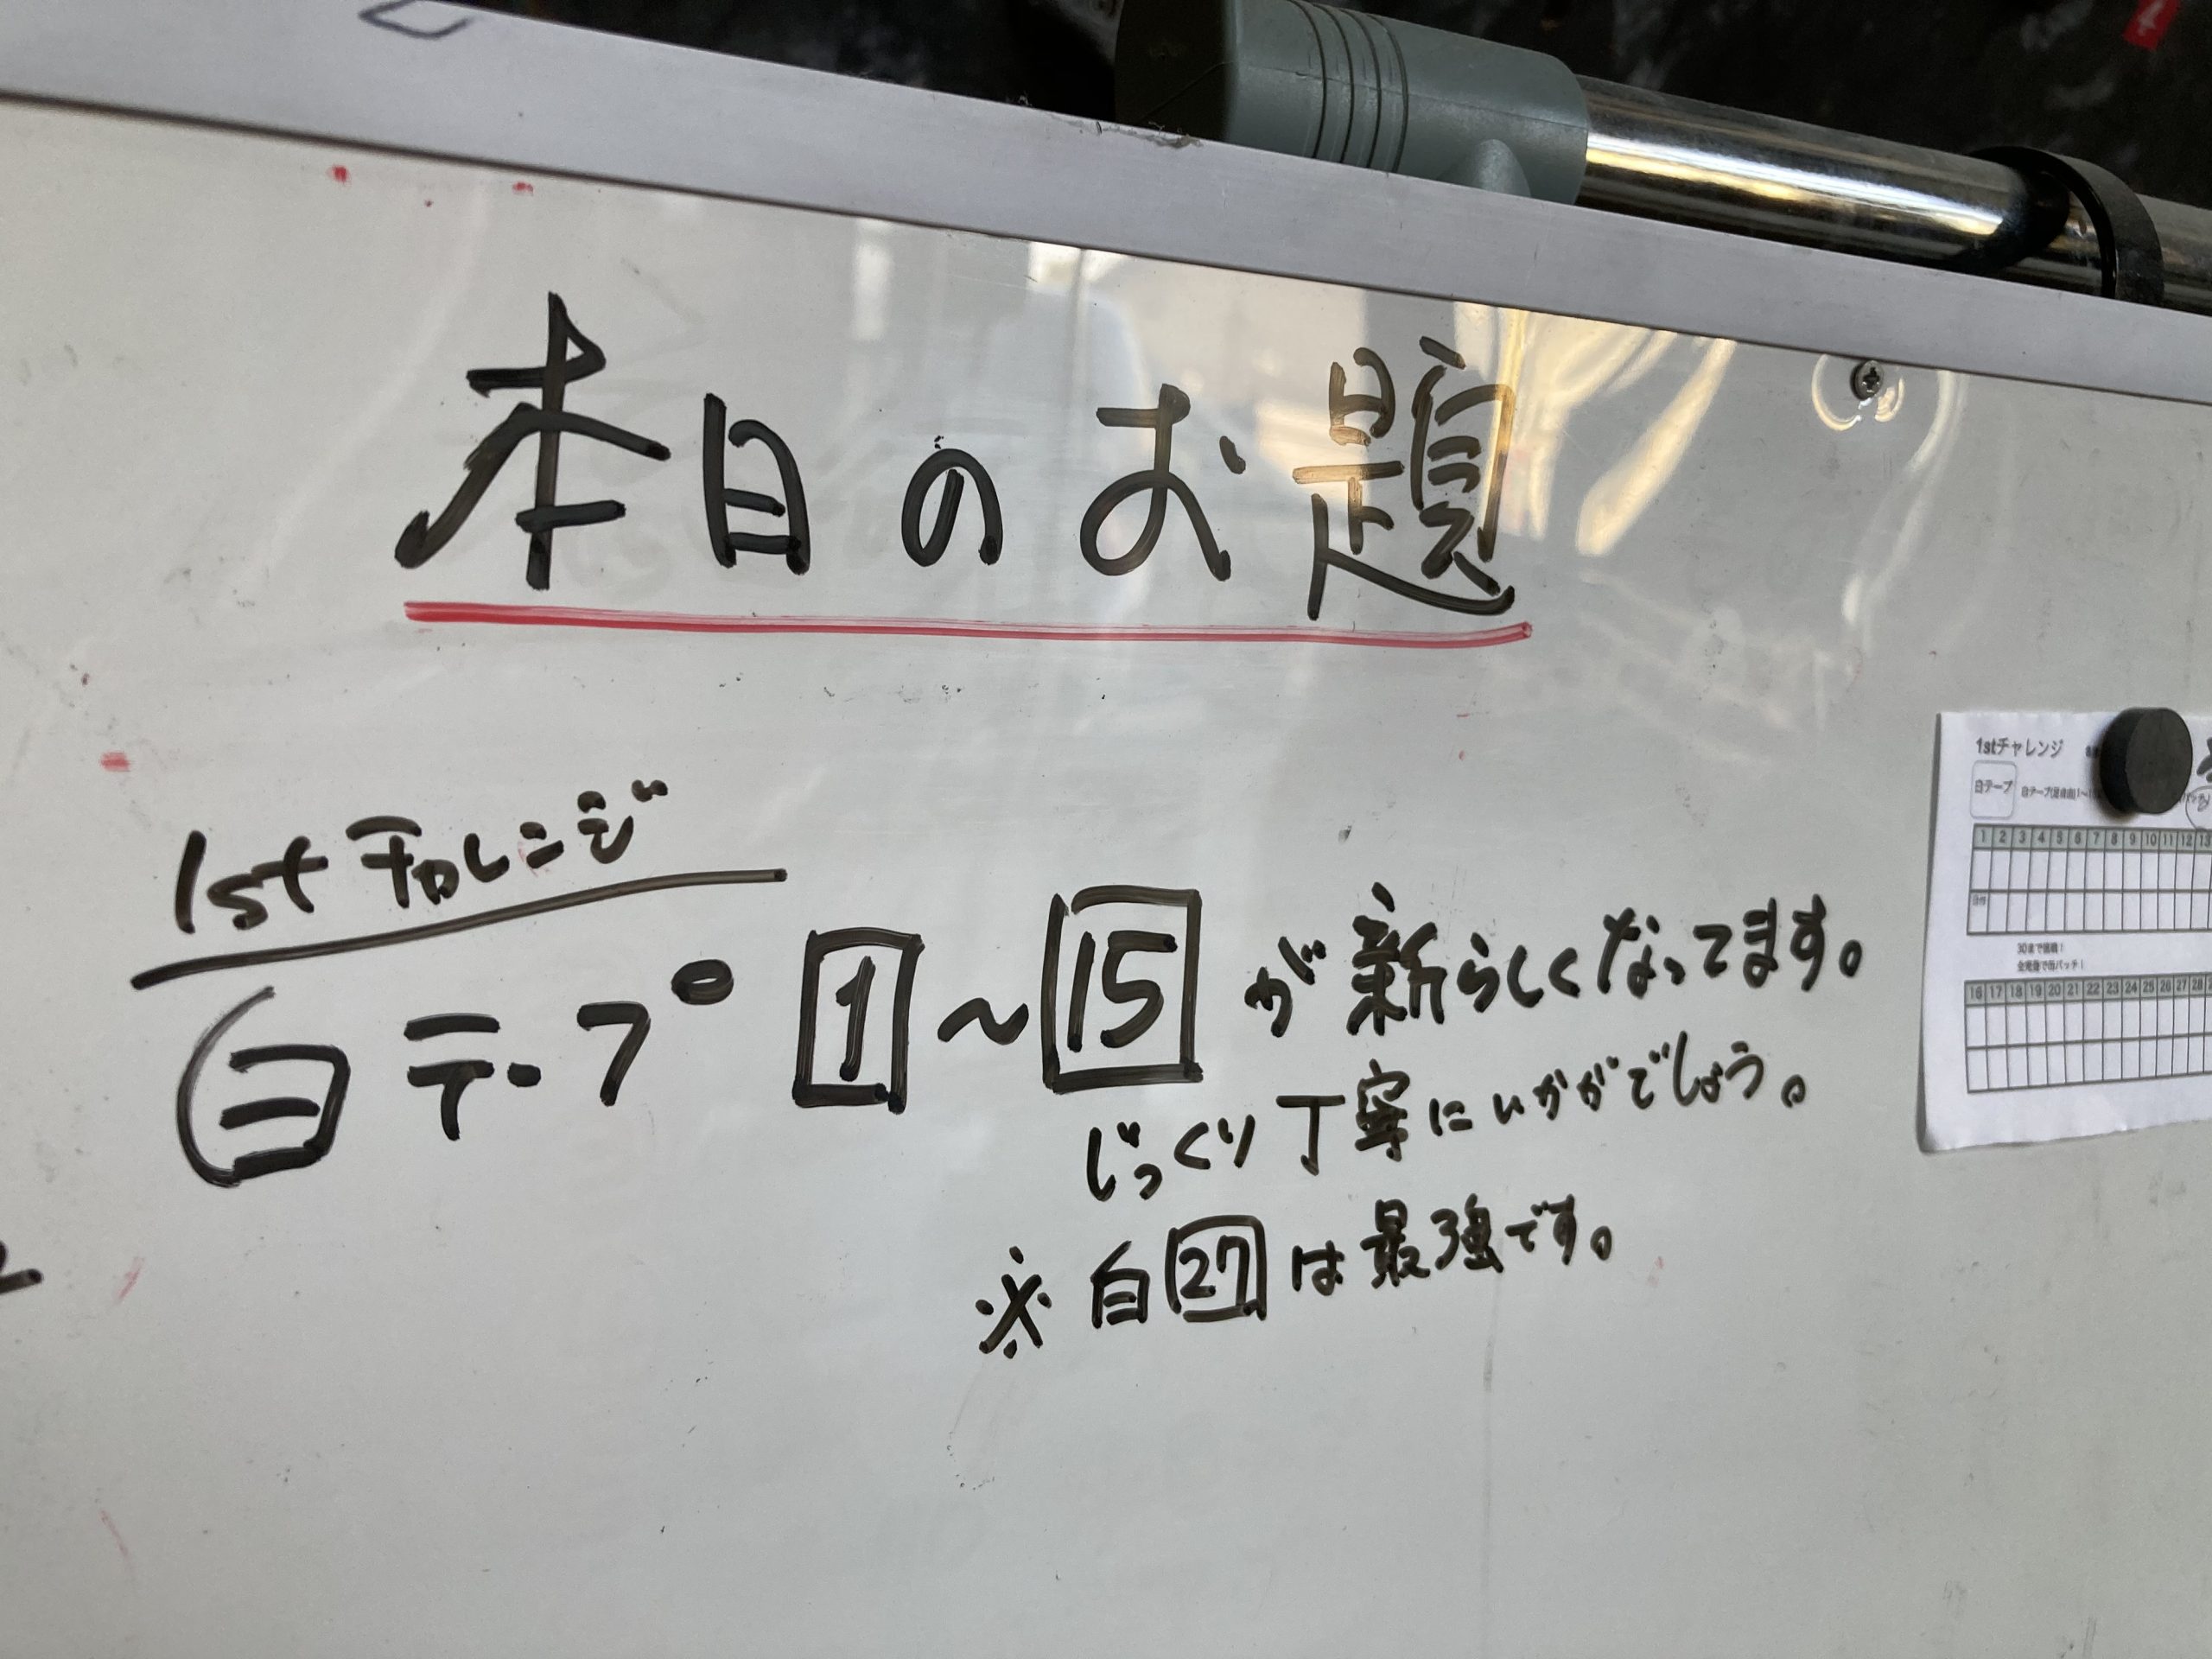 本日のお題
1stチャレンジ
白テープ 1〜15が新らしくなってます。
じっくり丁寧にいかがでしょう。
※白27は最強です。
1stチャレンジ
白テープ
白テープ
1 2 3 4 5 6 7 8 9 10 11 12 13
日付
30まで挑戦！
16 17 18 19 20 21 22 23 24 25 26 27 28